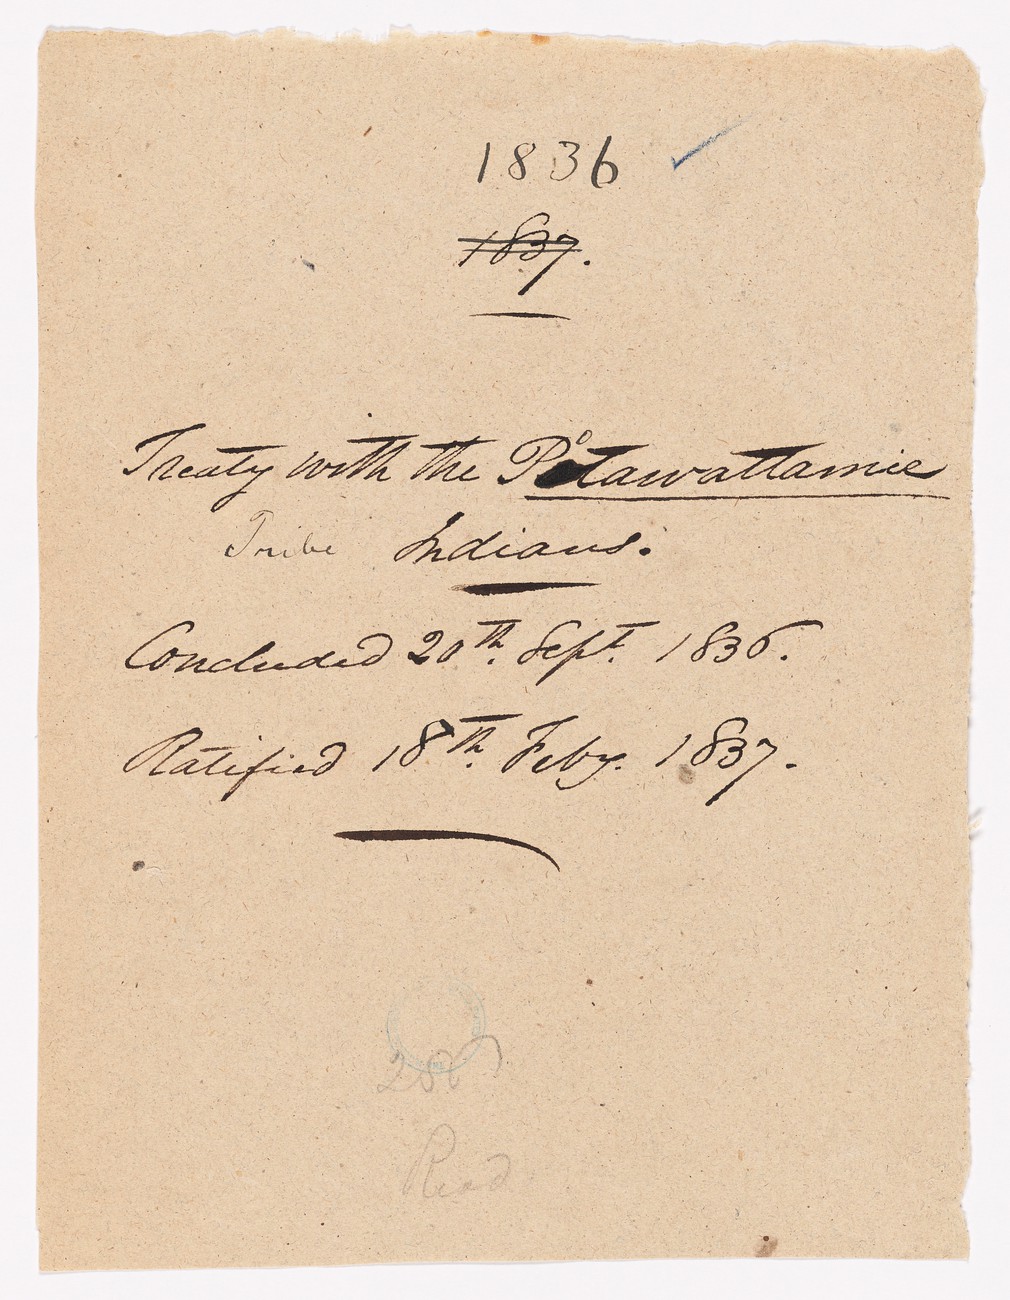 1836
1837.
Treaty with the Potawattamie
Tribe Indians.
Concluded 20th. Sept. 1836.
Ratified 18th. Feby. 1837.
Read